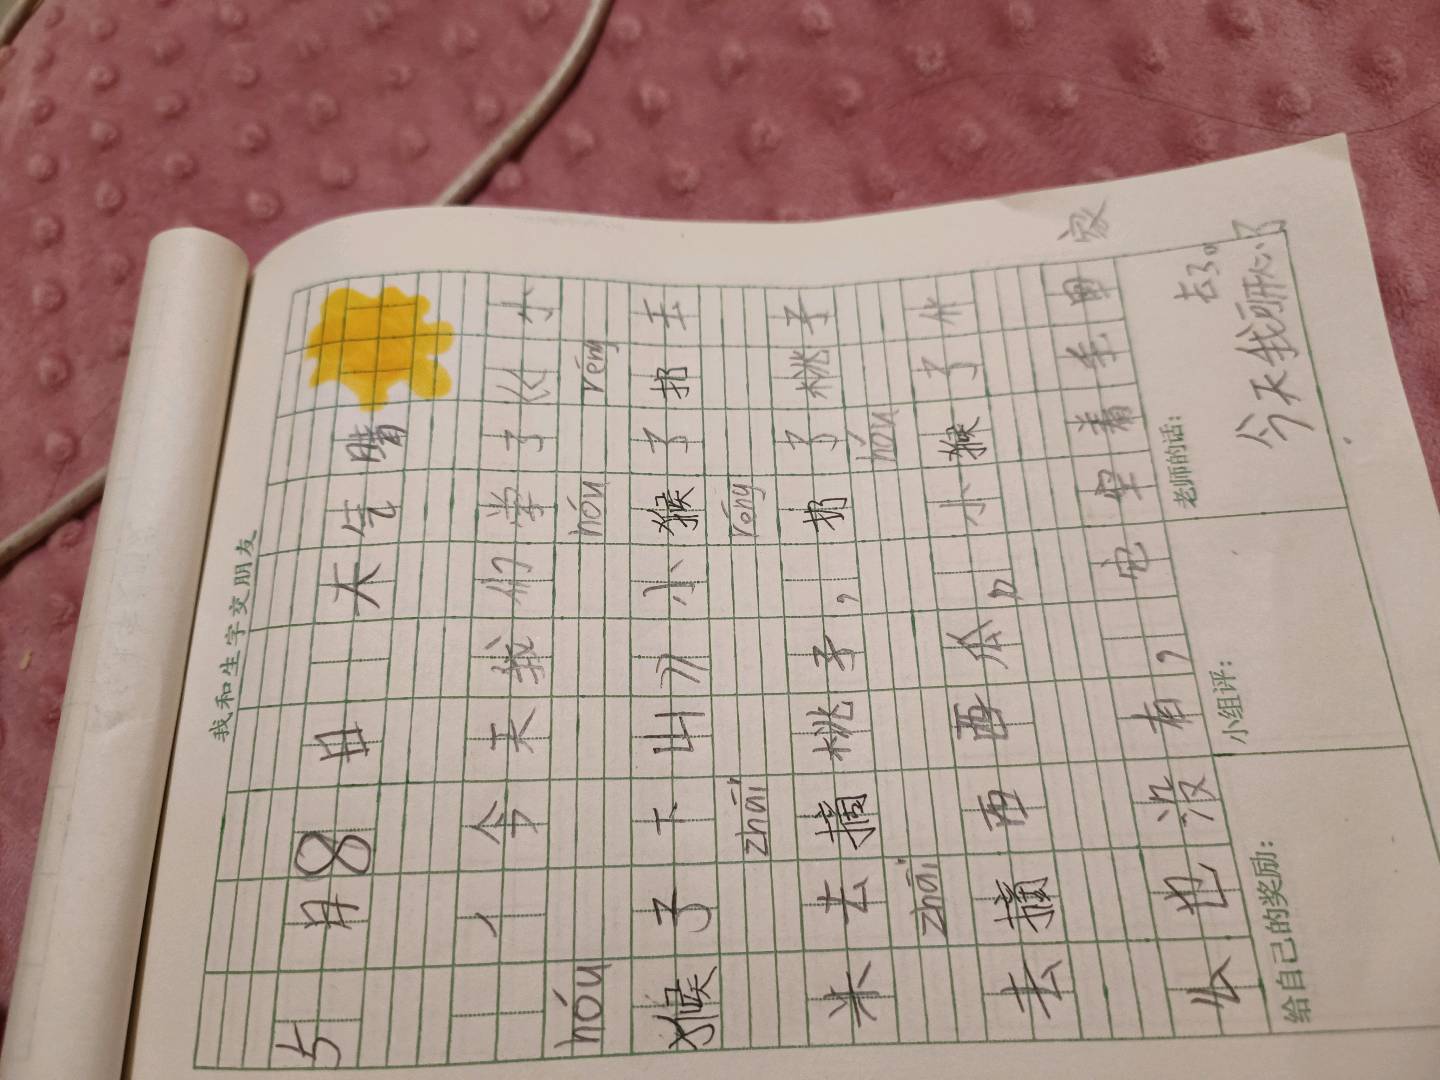 我和生字交朋友
5月8日 天气晴
今天我们学了《小
hóu hóu réng
猴子下山》小猴子扔玉
zhāi réng
米去摘桃子，扔了桃子
zhāi hóu
去摘西西瓜，小猴子什
么也没有，空空着手回家
去了。
给自己的奖励：
小组评：
老师的话：
今天我开心了